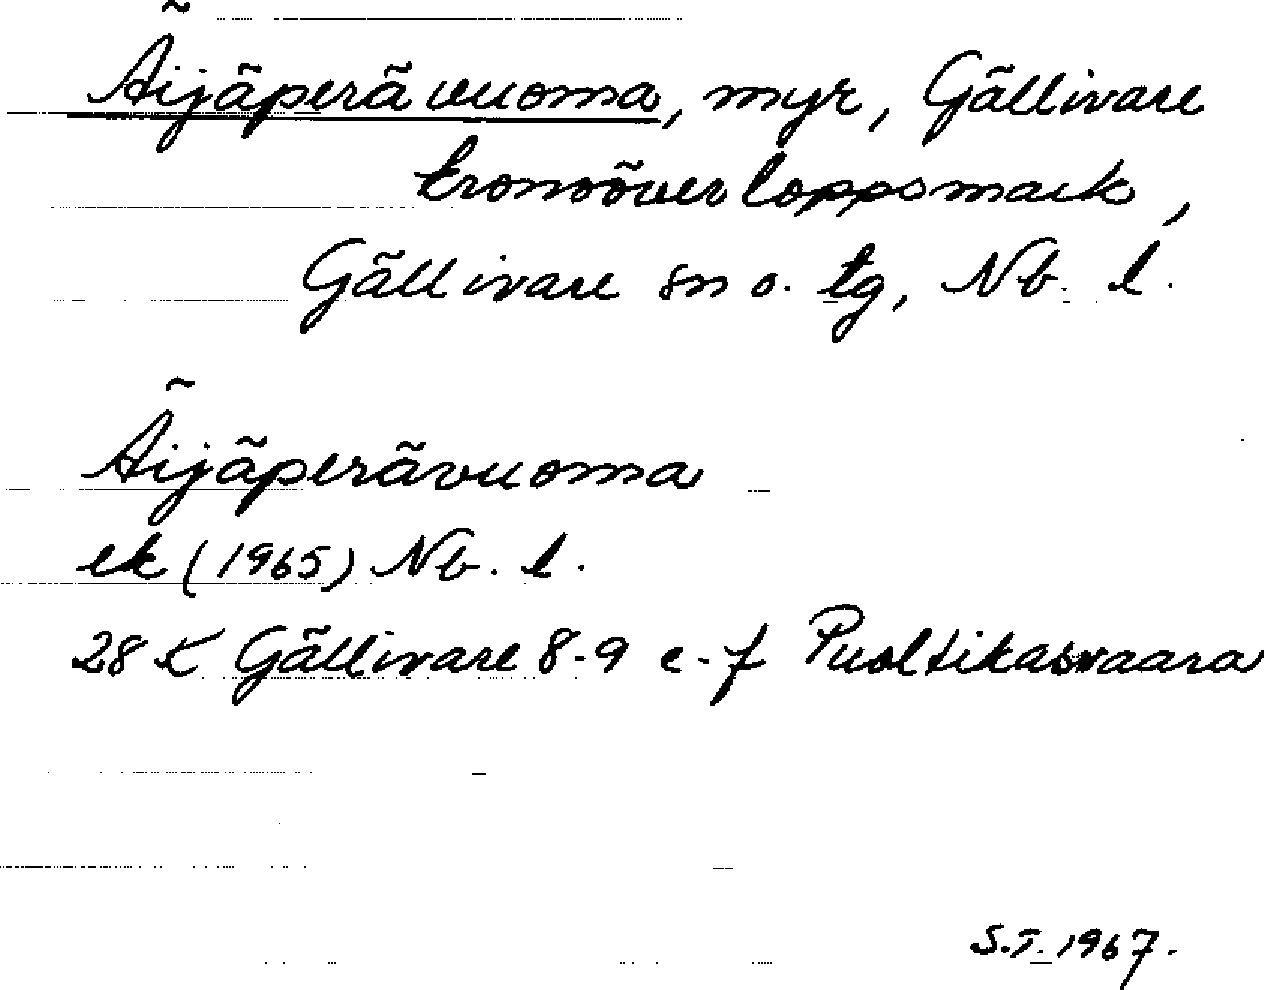 Äijäperävuoma, myr, Gällivare
kronoöverloppsmark,
Gällivare sn o. tg, Nb. l.
Äijäperävuoma
ek (1965) Nb. l.
28 K Gällivare 8-9 e-f Puoltikasvaara
S.T. 1967.